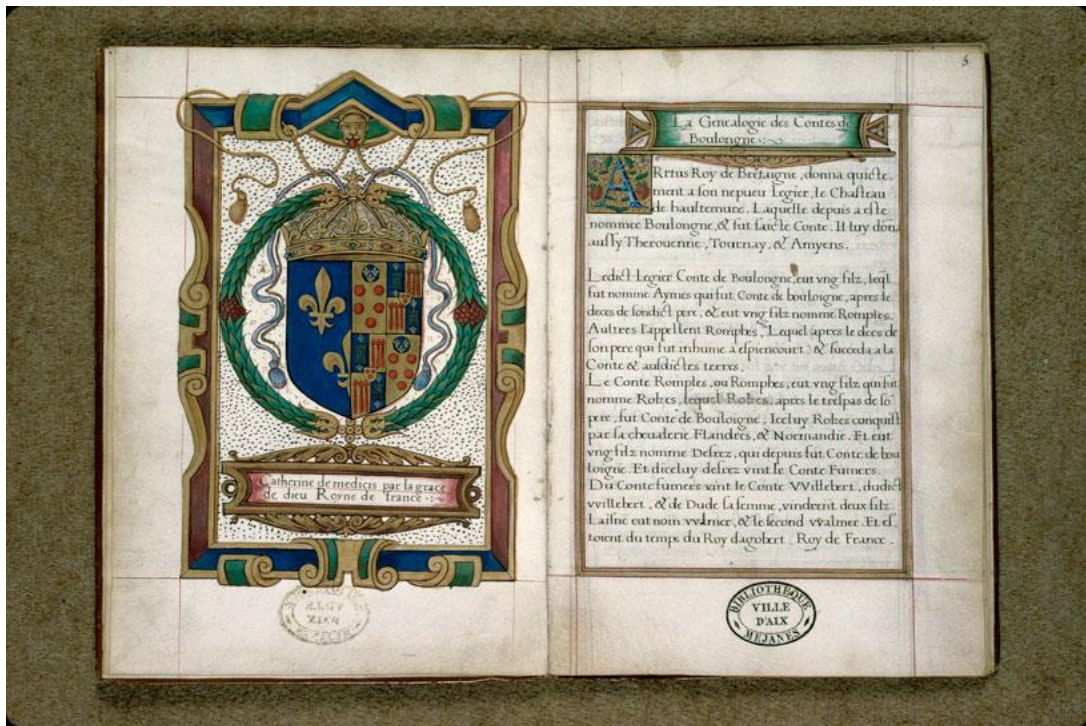 Catherine de medicis par la grace
de dieu Royne de france
5
La Genealogie des Contes de
Boulongne
ARtus Roy de Bretaigne, donna quicte
ment a son nepueu Legier, le Chasteau
de haultemure. Laquelle depuis a este
nommee Boulongne, & fut faict le Conte. Il luy dōna
aussy Therouenne, Tournay, & Amyens.
Ledict Legier Conte de Boulongne, eut vng filz, leql
fut nomme Aymes qui fut Conte de bouloigne, apres le
deces de sondict pere, & eut vng filz nomme Romples,
Aultres l'appellent Romphes, Lequel apres le deces de
son pere qui fut inhume a espiencourt, & succeda a la
Conte & ausdictes terres.
Le Conte Romples, ou Romphes, eut vng filz qui fut
nomme Rotzes, lequel Rotzes, apres le trespas de sō
pere, fut Conte de Bouloigne, Iceluy Rotzes conquist
par sa cheualerie Flandres, & Normandie. Et eut
vng filz nomme Desrez, qui depuis fut Conte de bou
loigne. Et diceluy desrez vint le Conte Fumers.
Du Conte fumers vint le Conte VVillebert, dudict
vvillebert, & de Dude sa femme, vindrent deux filz.
Laisne eut nom vvalmer, & le second vvalmer. Et es
toient du temps du Roy dagobert Roy de France.
BIBLIOTHEQUE
VILLE
D'AIX
MEJANES